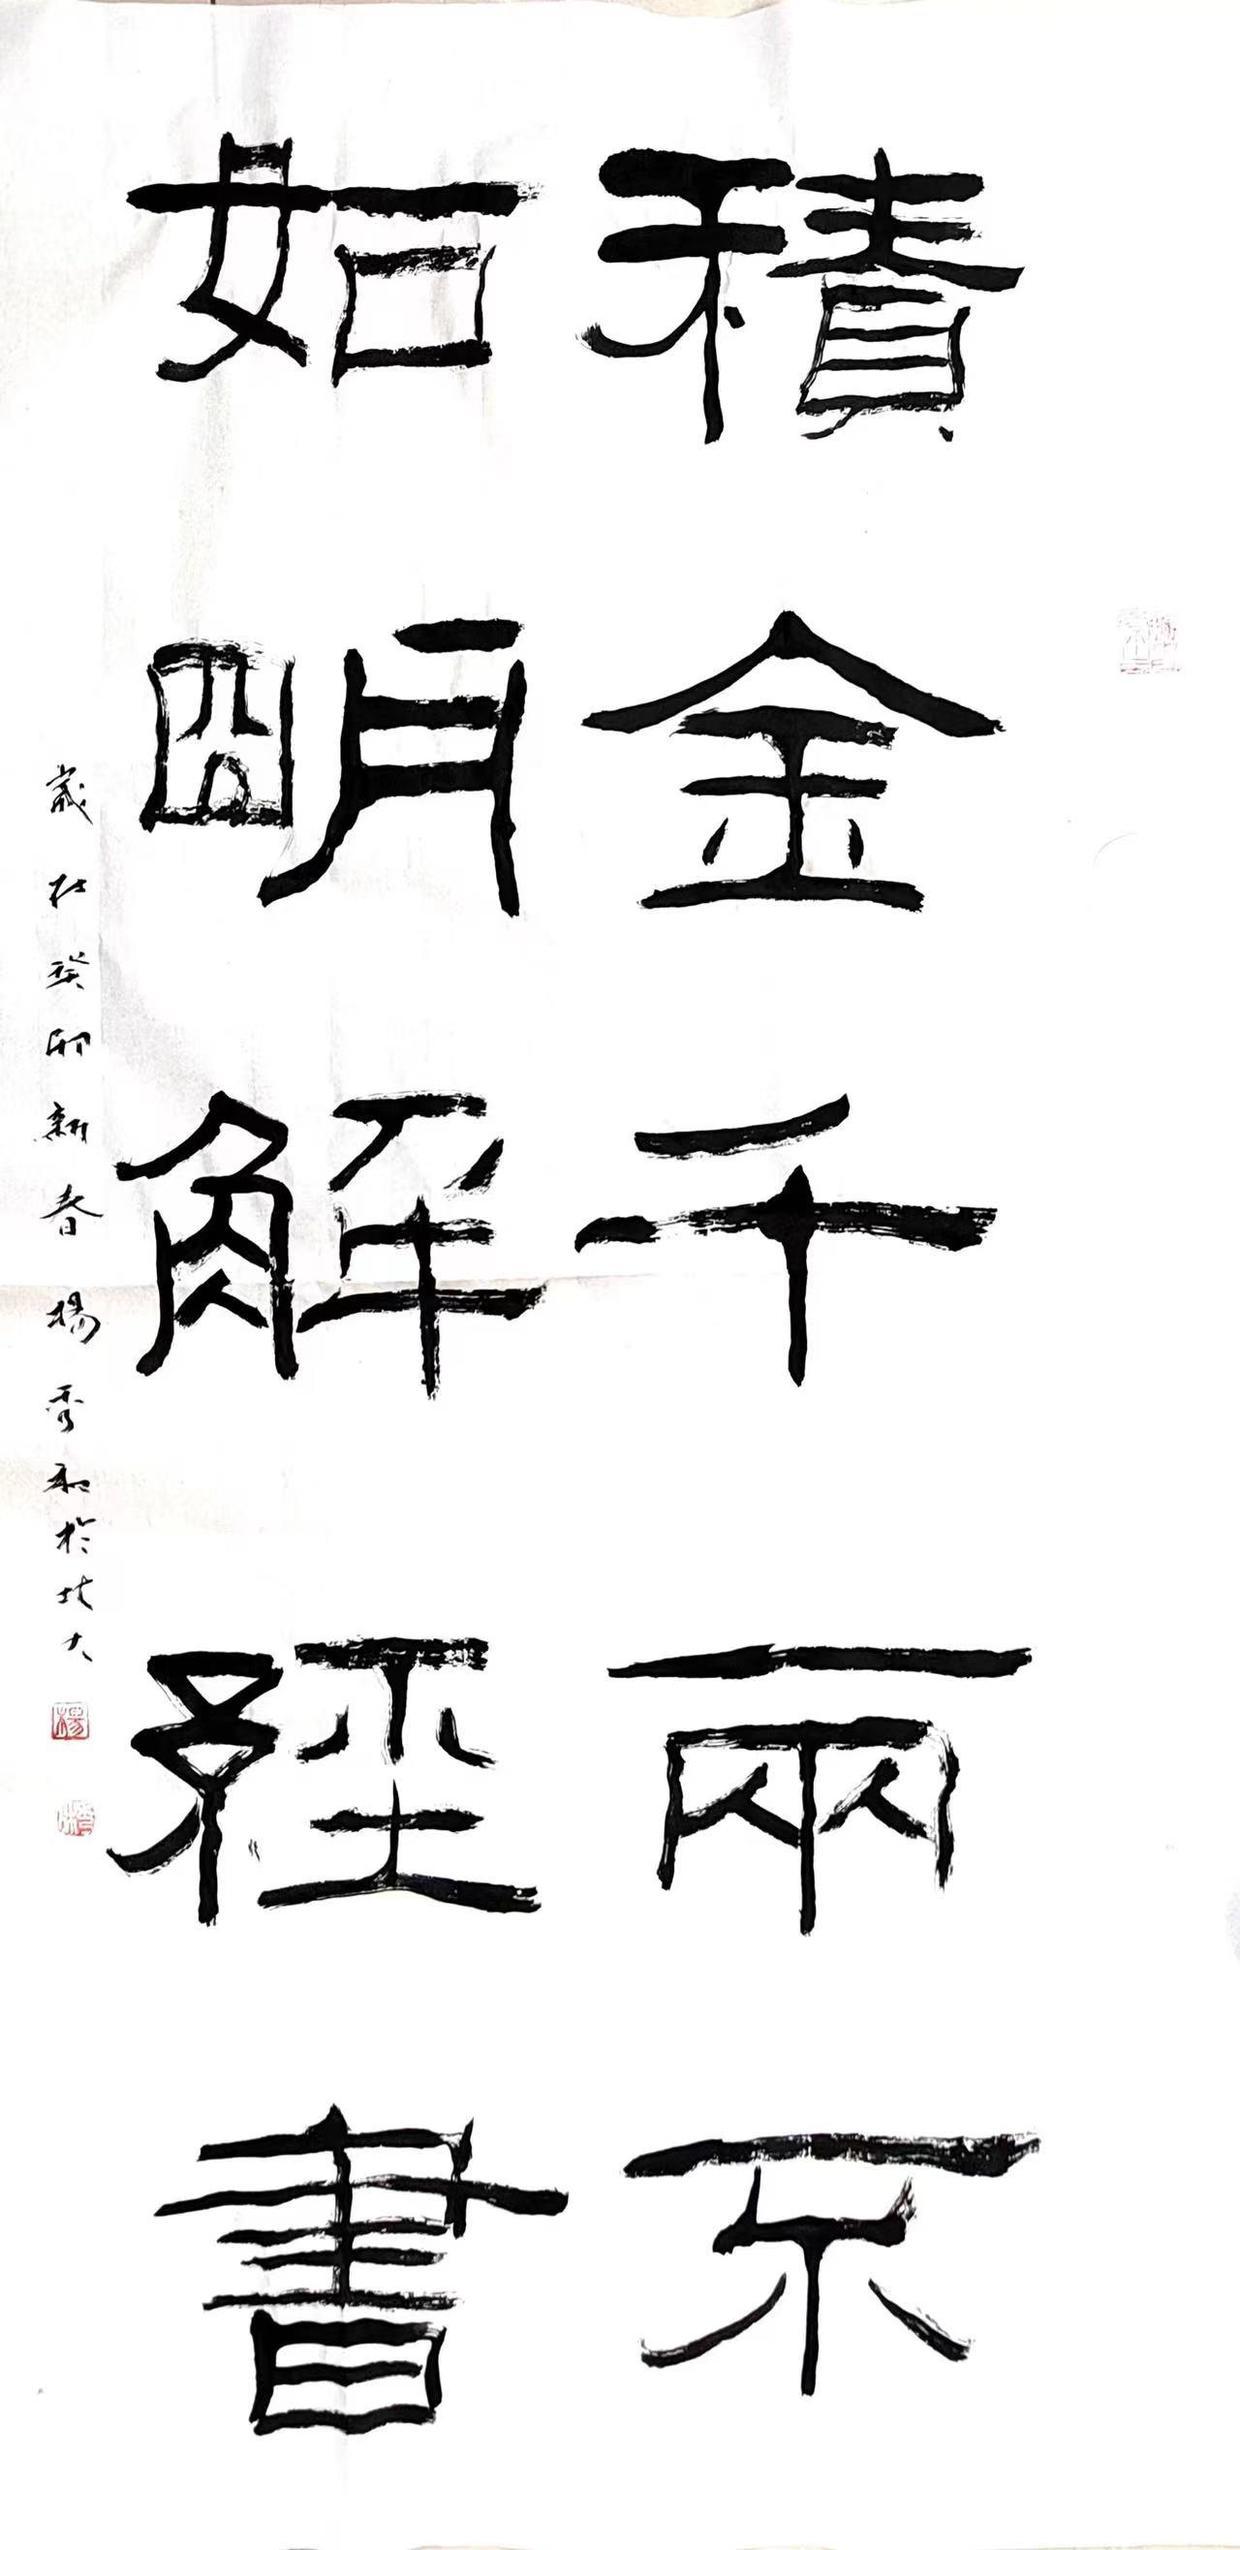 積金千兩不
如明解經書
歲在癸卯新春楊秀和於北大
楊